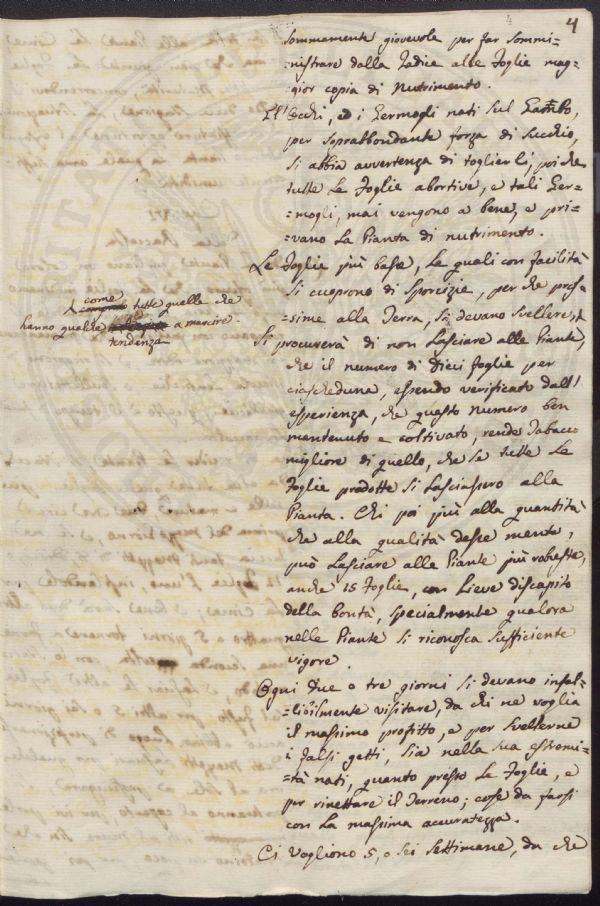 4
4
sommamente giovevole per far sommi=
=nistrare dalla Radice alle foglie mag=
gior copia di nutrimento.
Gl'Occhi, ed i Germogli nati sul Gambo,
per soprabbondante forza di succhio,
si abbia avvertenza di toglierli, poiche
tutte le foglie abortive, e tali Ger=
=mogli, mai vengono a bene, e pri=
=vano la Pianta di nutrimento.
Le foglie più basse, le quali con facilità
si cuoprono di sporcizie, per che pros=
=sime alla Terra, si devano svellere,
come tutte quelle che
hanno qualche a marcire.
tendenza
Si procurerà di non lasciare alle Piante,
che il numero di Dieci foglie per
ciascheduna, essendo verificato dall'
esperienza, che questo numero ben
mantenuto e coltivato, rende Tabacco
migliore di quello, che se tutte le
foglie prodotte si lasciassero alla
Pianta. Chi poi più alla quantità
che alla qualità desse mente,
può lasciare alle Piante più robuste,
anche 15 foglie, con lieve discapito
della bontà, specialmente qualora
nelle Piante si riconosca sufficiente
vigore.
Ogni due o tre giorni si devano infal=
=libilmente visitare, da chi ne voglia
il massimo profitto, e per svellerne
i falsi getti, sia nella sua estremi=
=tà nati, quanto presso le foglie, e
per rinettare il Terreno; cose da farsi
con la massima accuratezza.
Ci vogliono 5, o sei settimane, da che